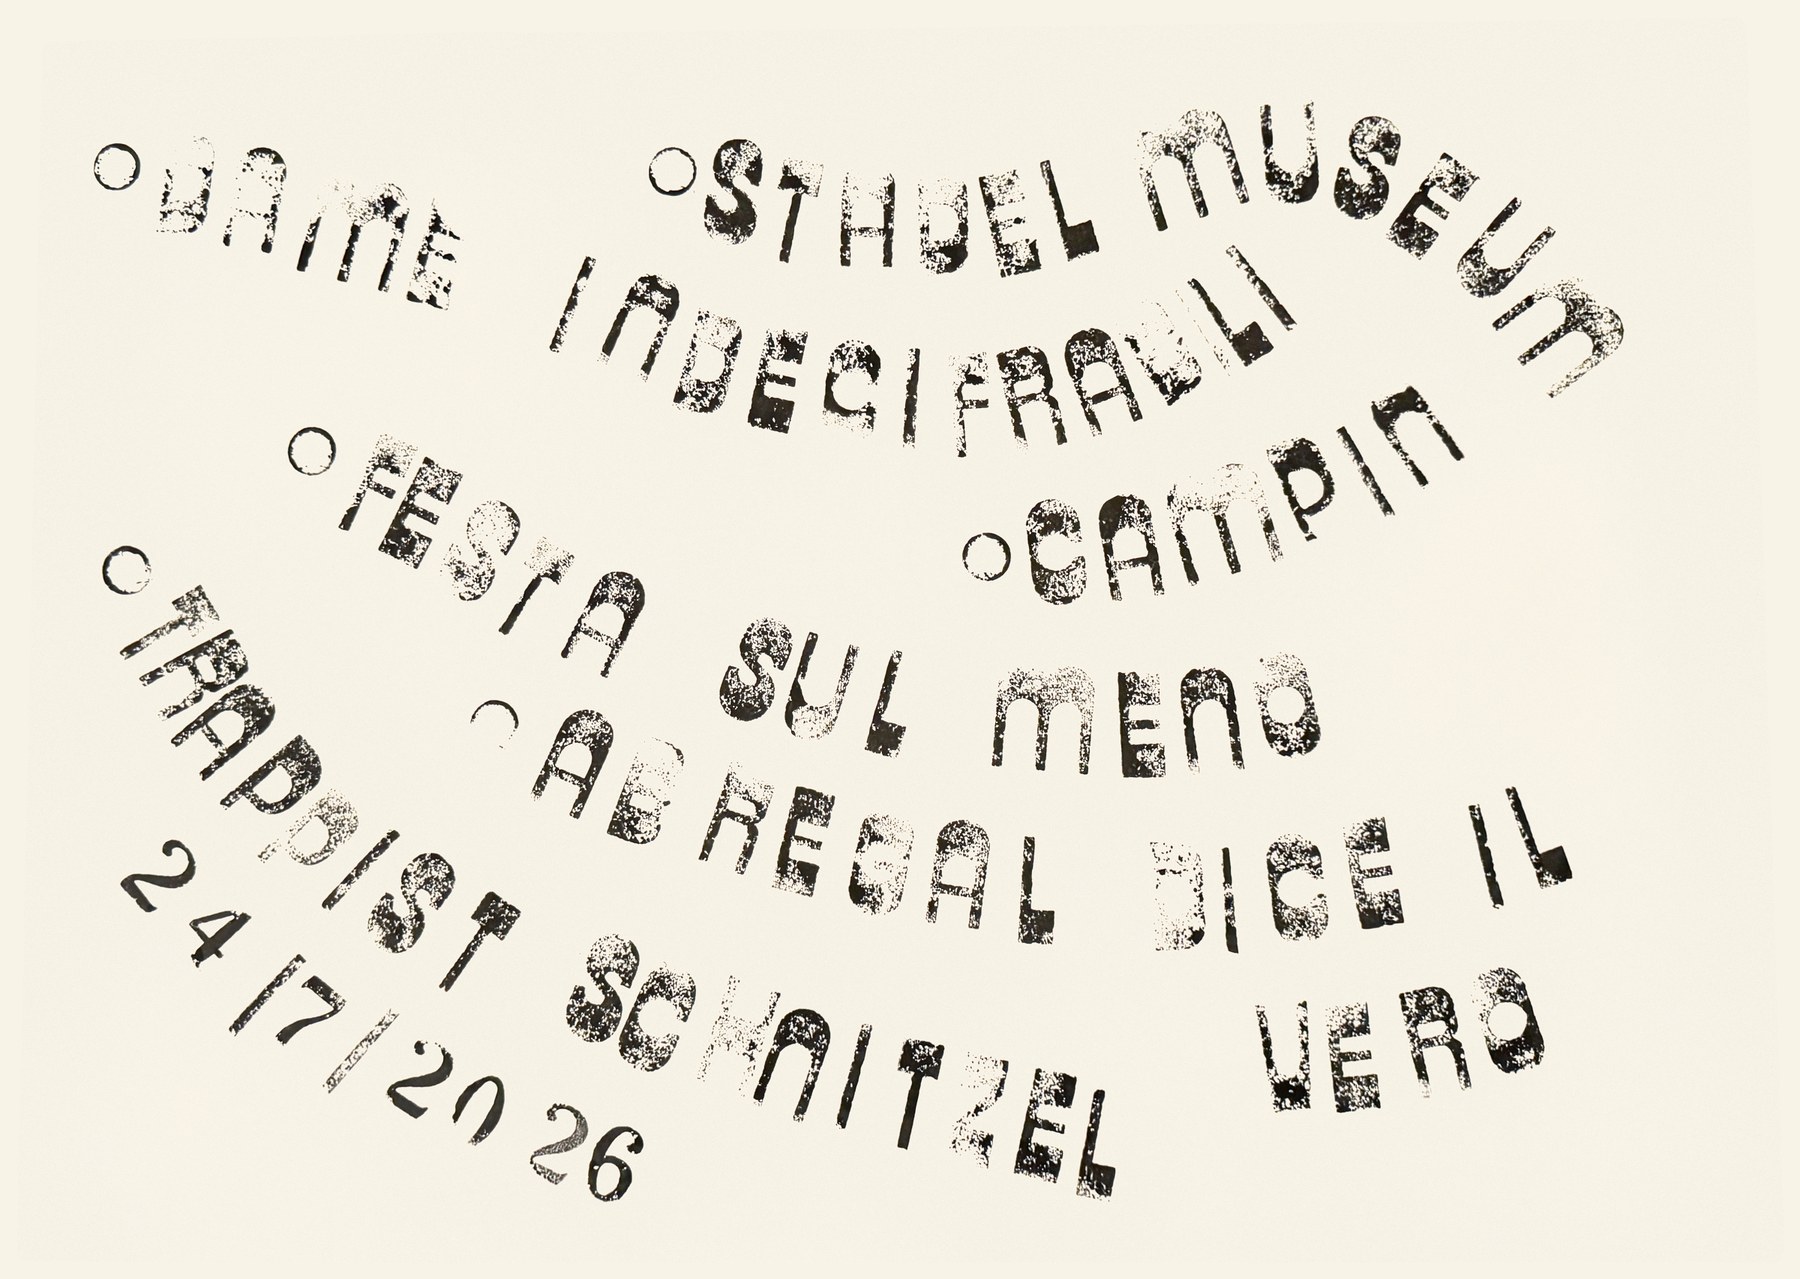 ○DAME INDECIFRABLI
○STHDEL MUSEUM
○FESTA SUL MENO
○CAMPIN
○TRAPPIST SCHNITZEL
○AB REGAL DICE IL VERO
24/7/2026